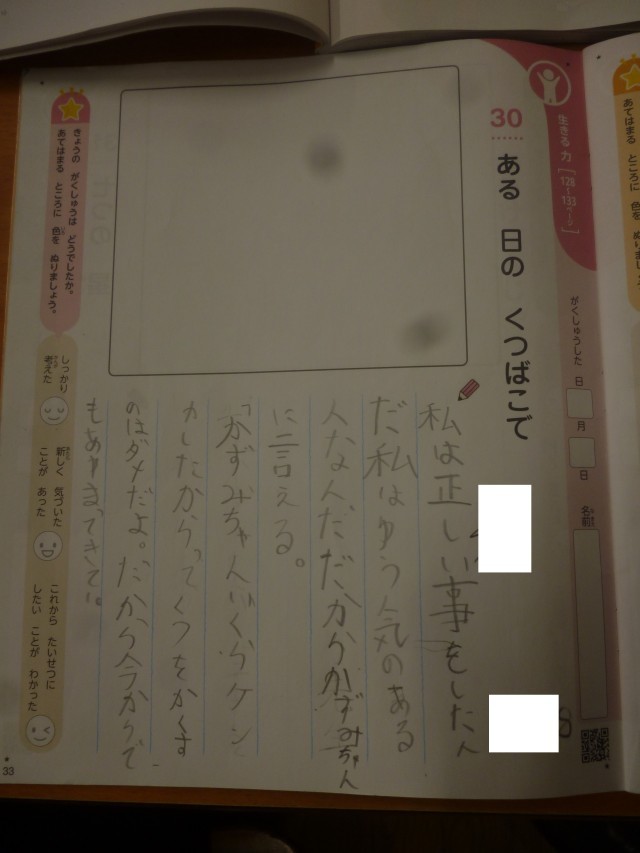 生きる力 [128〜133ページ]
がくしゅうした日 月 日 名前
30 ある 日の くつばこで
私は正しい事をしたん
だ私はゆう気のある
人な人だだからかずみちゃん
に言える。
「かずみちゃんいくらケン
カしたからってくつをかくす
のはダメだよ。だから今からで
もあやまってきて」。
きょうの がくしゅうは どうでしたか。
あてはまる ところに 色を ぬりましょう。
しっかり
考えた
新しく 気づいた
ことが あった
これから たいせつに
したい ことが わかった
33
あてはまる ところに 色を